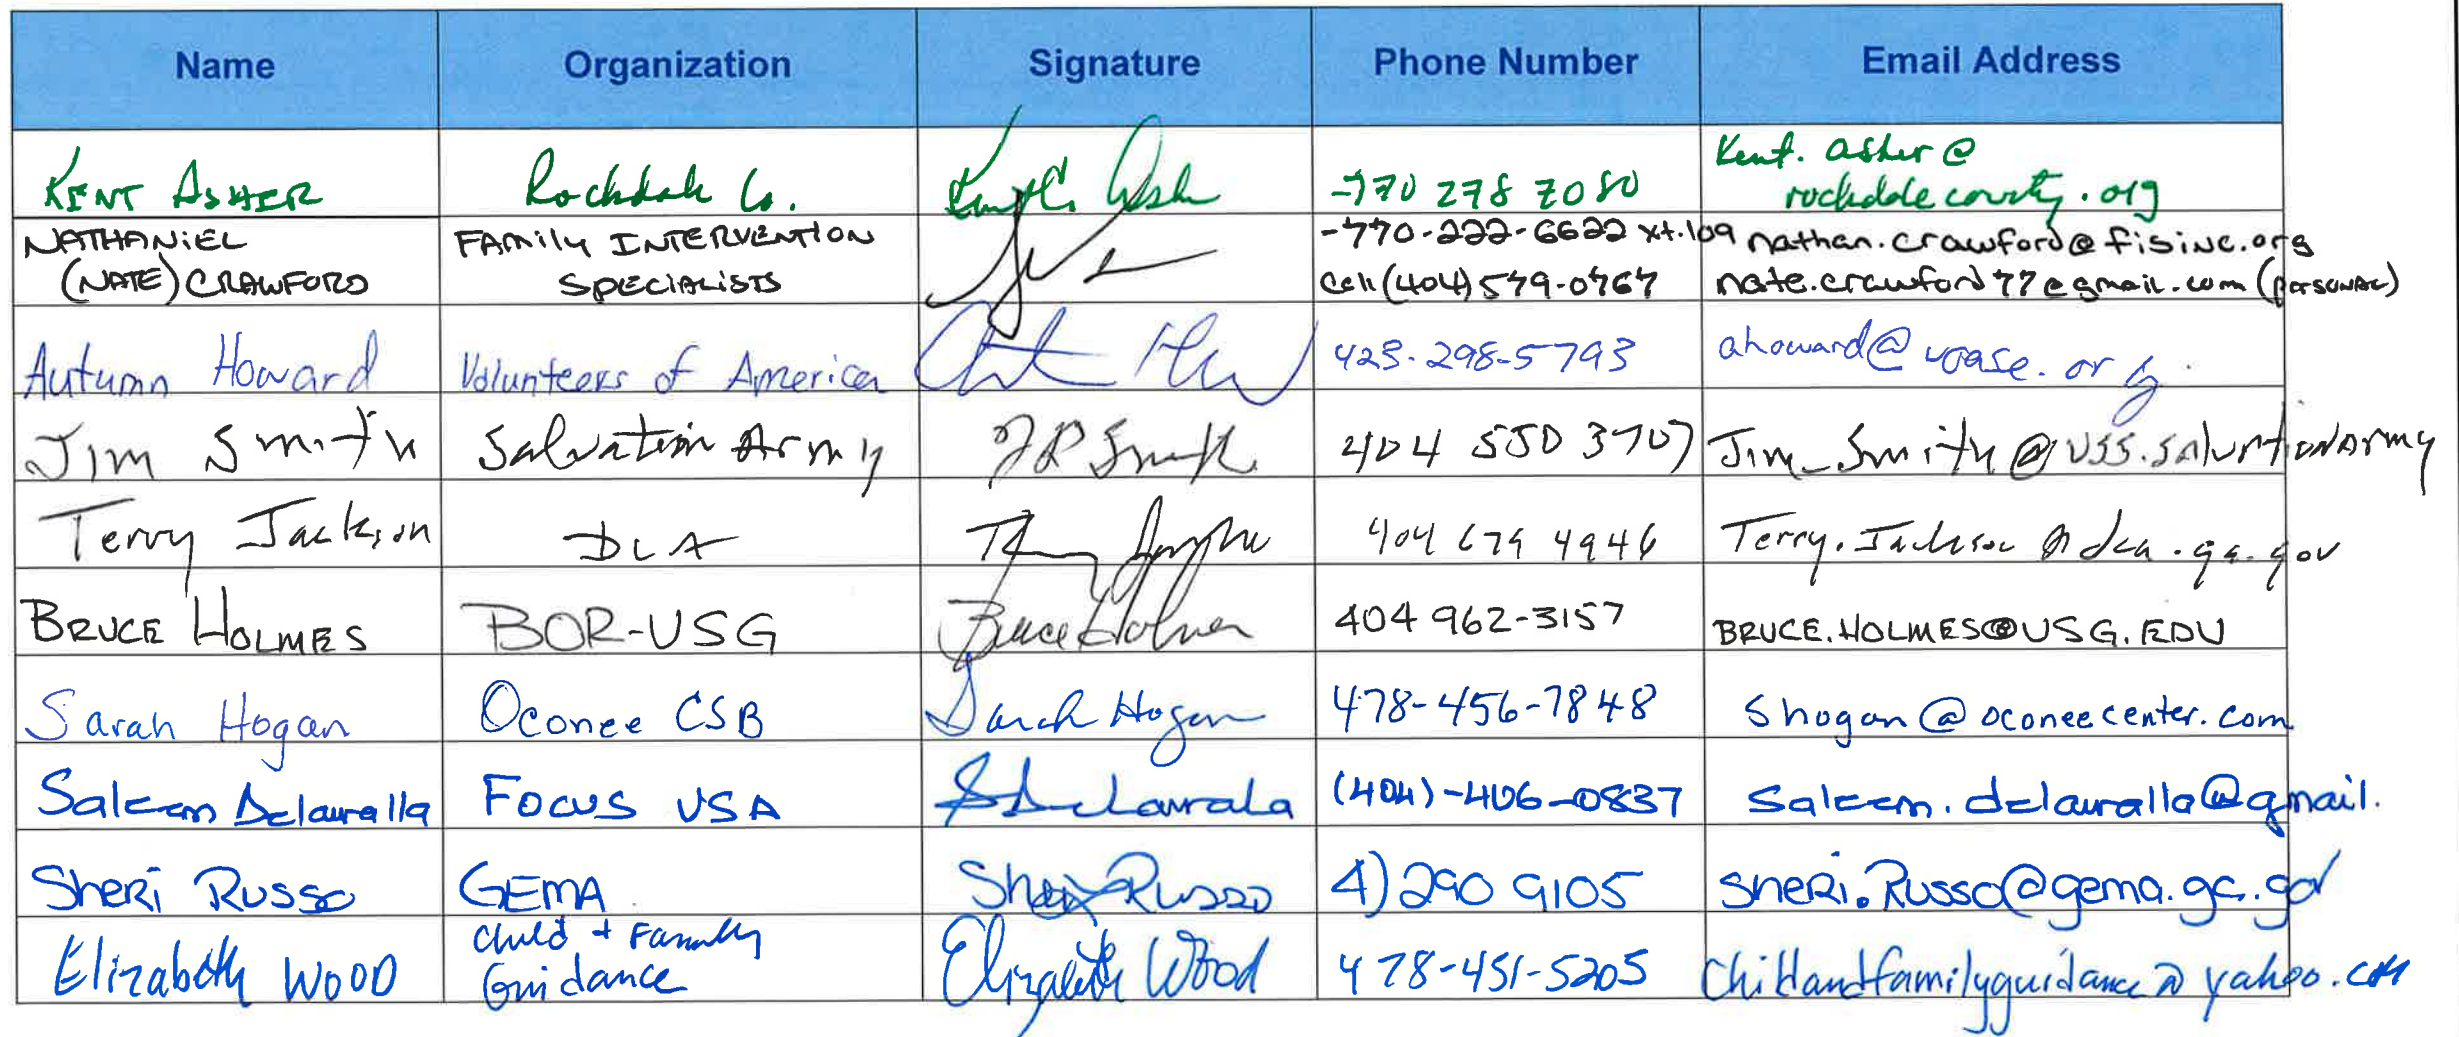 Name Organization Signature Phone Number Email Address
KENT ASHER Rockdale Co. -770 278 7080 Kent.asher@
rockdalecounty.org
NATHANIEL FAMILY INTERVENTION -770-222-6622 xt.109 nathan.crawford@fisinc.org
(NATE) CRAWFORD SPECIALISTS Cell (404) 579-0767 nate.crawford77@gmail.com (personal)
Autumn Howard Volunteers of America 423-298-5793 ahoward@voase.org
Jim Smith Salvation Army JR Smith 404 550 3707 Jim_Smith@USS.SalvationArmy
Terry Jackson DCA 404 679 4946 Terry.Jackson@dca.ga.gov
BRUCE HOLMES BOR-USG Bruce Holmes 404 962-3157 BRUCE.HOLMES@USG.EDU
Sarah Hogan Oconee CSB Sarah Hogan 478-456-7848 Shogan@oconeecenter.com
Saleem Delawalla FOCUS USA (404)-406-0837 saleem.delawalla@gmail.
SHERI RUSSO GEMA Sheri Russo 4) 290 9105 SHERI.RUSSO@gema.ga.gov
Elizabeth WOOD Child + Family Elizabeth Wood 478-451-5205 Childandfamilyguidance@yahoo.com
Guidance